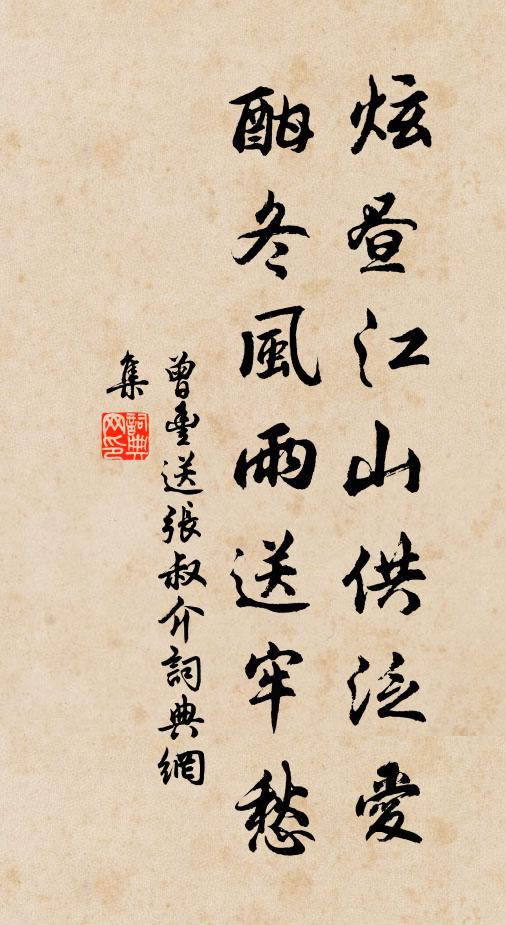 炫晝江山供泛愛
酣冬風雨送牢愁
曾豊送張叔介詞典網
集
詞典
网印